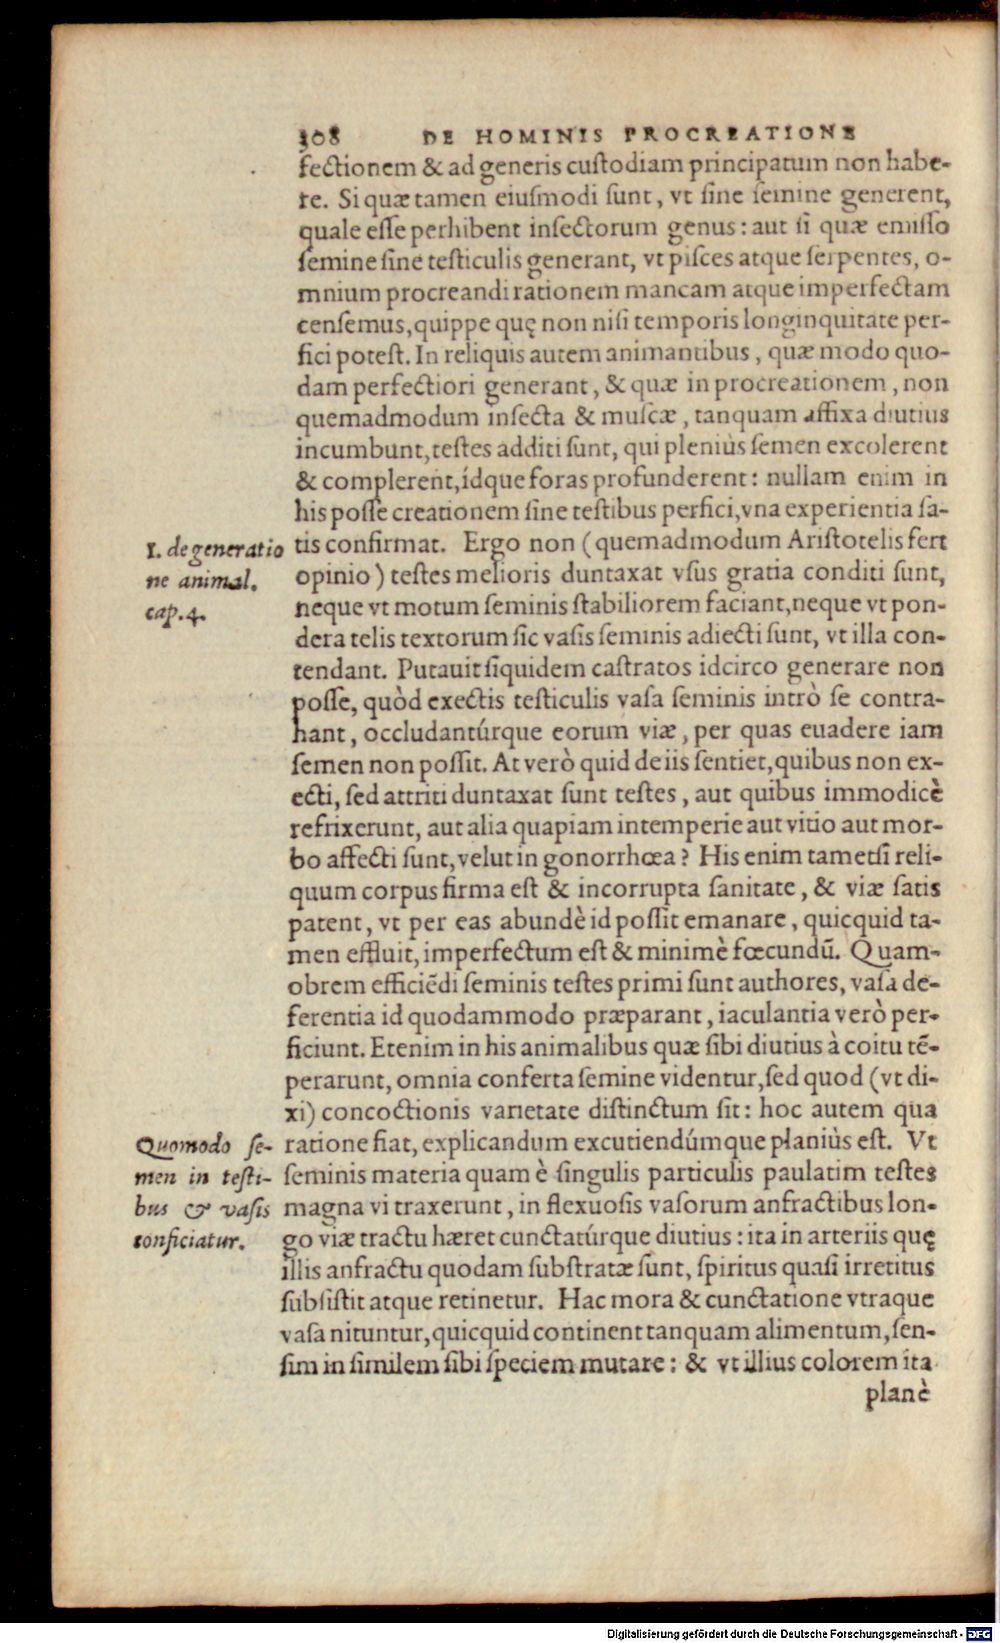 308 DE HOMINIS PROCREATIONE
fectionem & ad generis custodiam principatum non habe-
re. Si quæ tamen eiusmodi sunt, vt sine semine generent,
quale esse perhibent insectorum genus: aut si quæ emisso
semine sine testiculis generant, vt pisces atque serpentes, o-
mnium procreandi rationem mancam atque imperfectam
censemus, quippe quę non nisi temporis longinquitate per-
fici potest. In reliquis autem animantibus, quæ modo quo-
dam perfectiori generant, & quæ in procreationem, non
quemadmodum insecta & muscæ, tanquam affixa diutius
incumbunt, testes additi sunt, qui pleniùs semen excolerent
& complerent, ídque foras profunderent: nullam enim in
his posse creationem sine testibus perfici, vna experientia sa-
tis confirmat. Ergo non (quemadmodum Aristotelis fert
opinio) testes melioris duntaxat vsus gratia conditi sunt,
neque vt motum seminis stabiliorem faciant, neque vt pon-
dera telis textorum sic vasis seminis adiecti sunt, vt illa con-
tendant. Putauit siquidem castratos idcirco generare non
posse, quòd exectis testiculis vasa seminis intrò se contra-
hant, occludantúrque eorum viæ, per quas euadere iam
semen non possit. At verò quid de iis sentiet, quibus non ex-
ecti, sed attriti duntaxat sunt testes, aut quibus immodicè
refrixerunt, aut alia quapiam intemperie aut vitio aut mor-
bo affecti sunt, velut in gonorrhœa? His enim tametsi reli-
quum corpus firma est & incorrupta sanitate, & viæ satis
patent, vt per eas abundè id possit emanare, quicquid ta-
men effluit, imperfectum est & minimè fœcundū. Quam-
obrem efficiēdi seminis testes primi sunt authores, vasa de-
ferentia id quodammodo præparant, iaculantia verò per-
ficiunt. Etenim in his animalibus quæ sibi diutius à coitu tē-
perarunt, omnia conferta semine videntur, sed quod (vt di-
xi) concoctionis varietate distinctum sit: hoc autem qua
ratione fiat, explicandum excutiendúmque planiùs est. Vt
seminis materia quam è singulis particulis paulatim testes
magna vi traxerunt, in flexuosis vasorum anfractibus lon-
go viæ tractu hæret cunctatúrque diutius: ita in arteriis quę
illis anfractu quodam substratæ sunt, spiritus quasi irretitus
subsistit atque retinetur. Hac mora & cunctatione vtraque
vasa nituntur, quicquid continent tanquam alimentum, sen-
sim in similem sibi speciem mutare: & vt illius colorem ita
planè
1. de generatio
ne animal.
cap. 4.
Quomodo se-
men in testi-
bus & vasis
conficiatur.
Digitalisierung gefördert durch die Deutsche Forschungsgemeinschaft - DFG